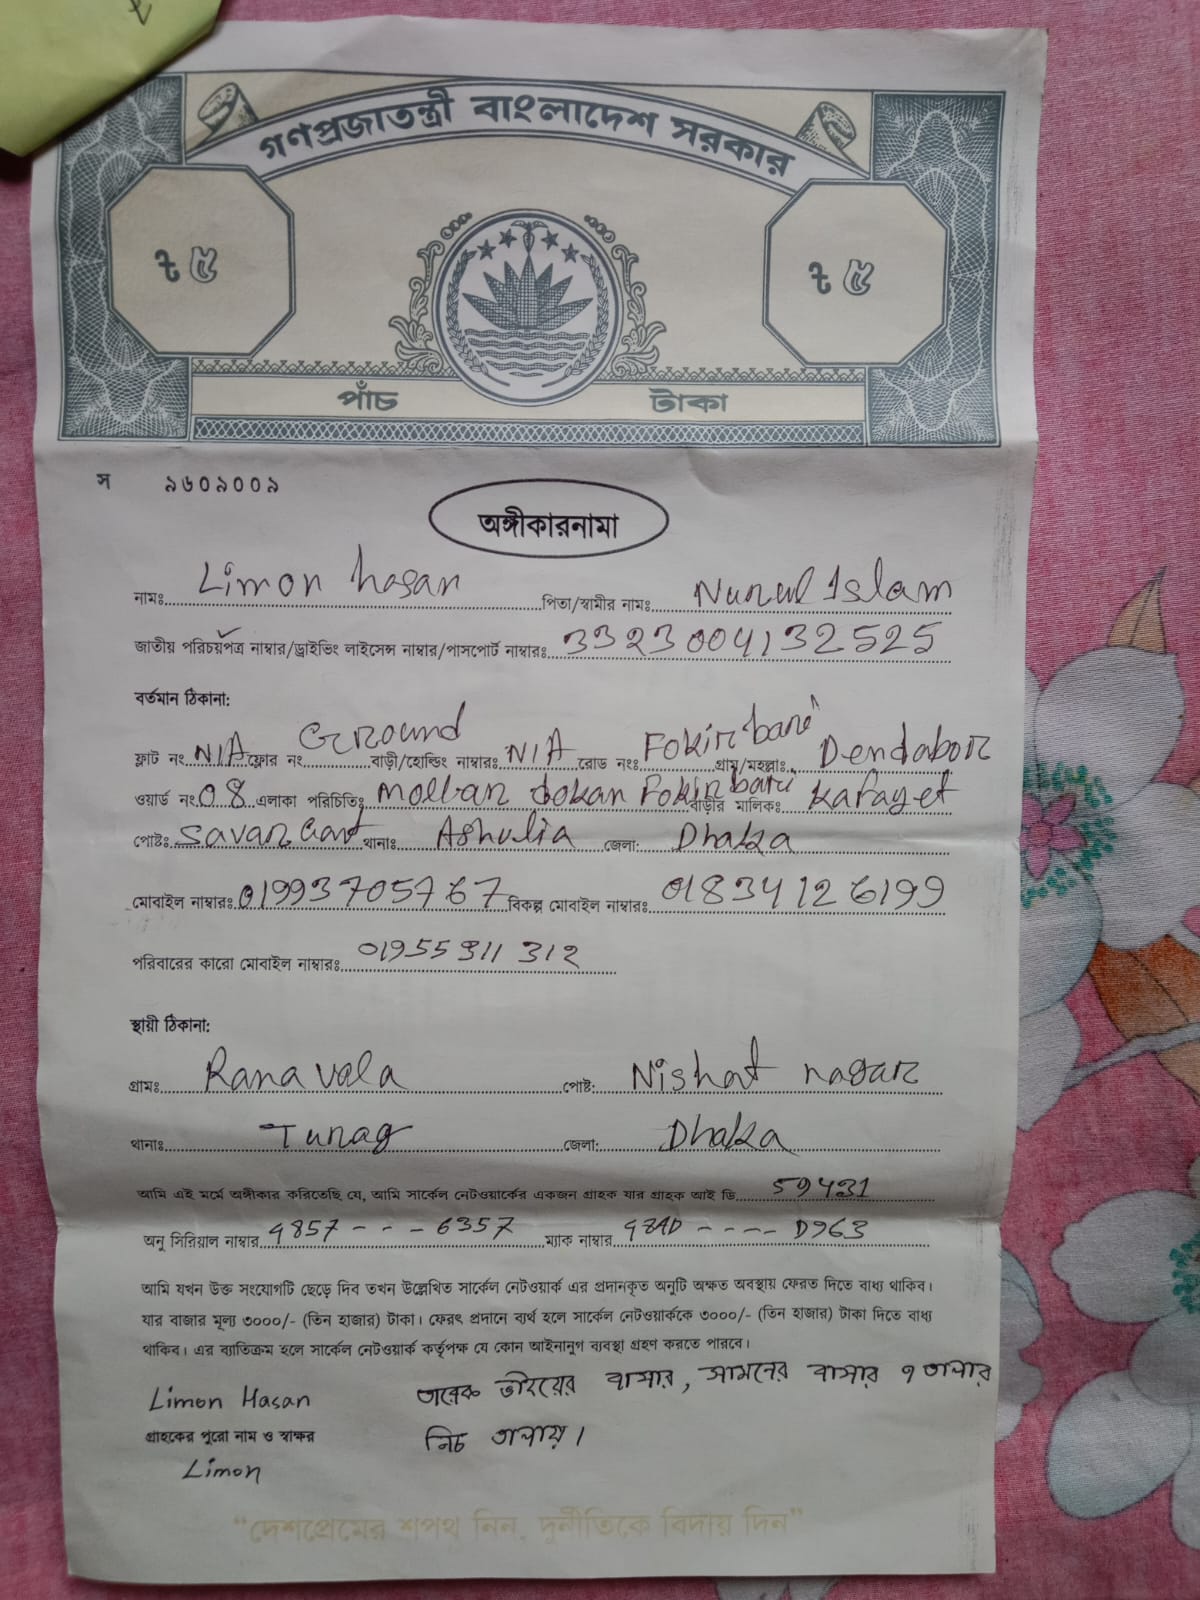 গণপ্রজাতন্ত্রী বাংলাদেশ সরকার
৳ ৫ ৳ ৫
পাঁচ টাকা
স ৯৬০৯০০৯
অঙ্গীকারনামা
নামঃ Limon hasan পিতা/স্বামীর নামঃ Nurul Islam
জাতীয় পরিচয়পত্র নাম্বার/ড্রাইভিং লাইসেন্স নাম্বার/পাসপোর্ট নাম্বারঃ 3323004132525
বর্তমান ঠিকানা:
ফ্লাট নং N/A ফ্লোর নং Ground বাড়ী/হোল্ডিং নাম্বারঃ N/A রোড নংঃ Fokir bari গ্রাম/মহল্লাঃ Dendabor
ওয়ার্ড নং 08 এলাকা পরিচিতিঃ mollan dokan Fokir bari বাড়ীর মালিকঃ Kafayet
পোষ্টঃ Savar Cant থানাঃ Ashulia জেলা: Dhaka
মোবাইল নাম্বারঃ 01993705767 বিকল্প মোবাইল নাম্বারঃ 01834126199
পরিবারের কারো মোবাইল নাম্বারঃ 01955311312
স্থায়ী ঠিকানা:
গ্রামঃ Rana vola পোষ্ট: Nishat nagar
থানাঃ Turag জেলা: Dhaka
আমি এই মর্মে অঙ্গীকার করিতেছি যে, আমি সার্কেল নেটওয়ার্কের একজন গ্রাহক যার গ্রাহক আই ডি 59431
অনু সিরিয়াল নাম্বার 4857 - - - 6357 ম্যাক নাম্বার 984D - - - - D963
আমি যখন উক্ত সংযোগটি ছেড়ে দিব তখন উল্লেখিত সার্কেল নেটওয়ার্ক এর প্রদানকৃত অনুটি অক্ষত অবস্থায় ফেরত দিতে বাধ্য থাকিব।
যার বাজার মূল্য ৩০০০/- (তিন হাজার) টাকা। ফেরৎ প্রদানে ব্যর্থ হলে সার্কেল নেটওয়ার্ককে ৩০০০/- (তিন হাজার) টাকা দিতে বাধ্য
থাকিব। এর ব্যাতিক্রম হলে সার্কেল নেটওয়ার্ক কর্তৃপক্ষ যে কোন আইনানুগ ব্যবস্থা গ্রহণ করতে পারবে।
তারেক ভাইয়ের বাসার, সামনের বাসার ৭ তালার
Limon Hasan
নিচ তালায়।
গ্রাহকের পুরো নাম ও স্বাক্ষর
Limon
"দেশপ্রেমের শপথ নিন, দুর্নীতিকে বিদায় দিন"